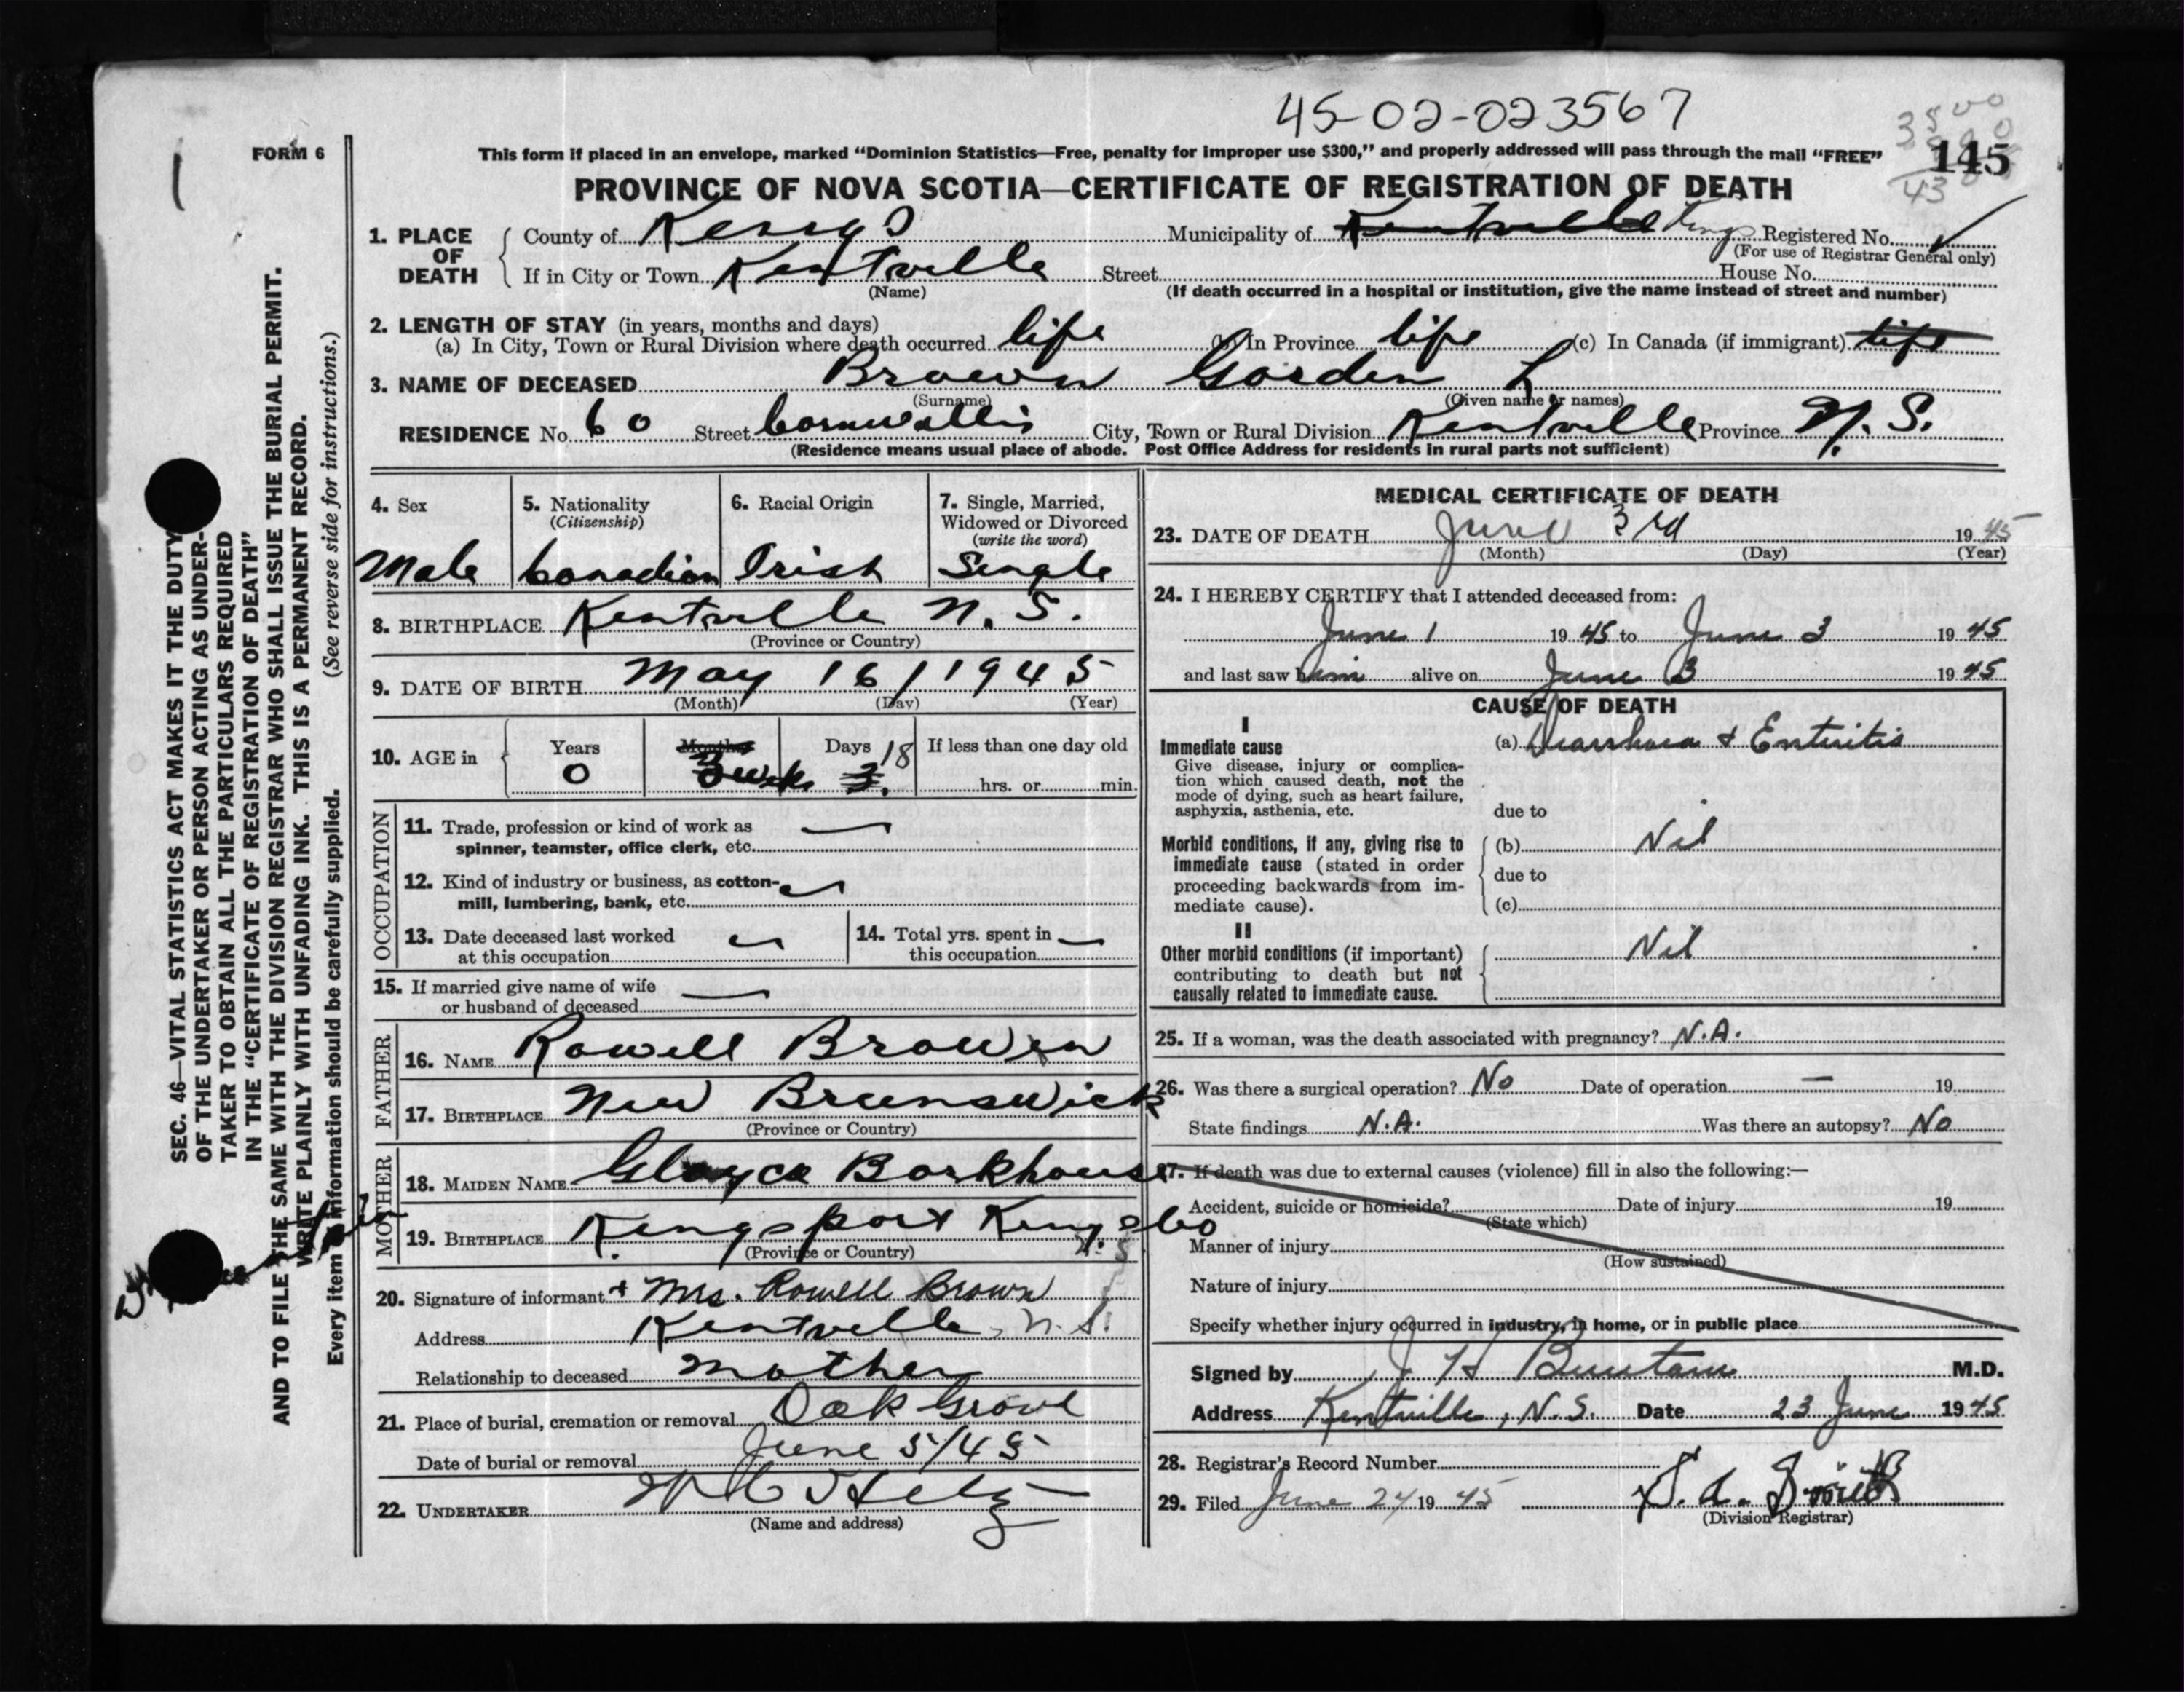 45-02-023567
FORM 6
This form if placed in an envelope, marked “Dominion Statistics—Free, penalty for improper use $300,” and properly addressed will pass through the mail “FREE”
145
PROVINCE OF NOVA SCOTIA—CERTIFICATE OF REGISTRATION OF DEATH
1. PLACE OF DEATH County of Kings Municipality of Kentville Kings Registered No.
(For use of Registrar General only)
If in City or Town Kentville Street House No.
(Name) (If death occurred in a hospital or institution, give the name instead of street and number)
2. LENGTH OF STAY (in years, months and days)
(a) In City, Town or Rural Division where death occurred life (b) In Province life (c) In Canada (if immigrant) life
3. NAME OF DECEASED Brown Gorden L
(Surname) (Given name or names)
RESIDENCE No. 60 Street Cornwallis City, Town or Rural Division Kentville Province N. S.
(Residence means usual place of abode. Post Office Address for residents in rural parts not sufficient)
4. Sex
Male
5. Nationality
(Citizenship)
Canadian
6. Racial Origin
Irish
7. Single, Married,
Widowed or Divorced
(write the word)
Single
8. BIRTHPLACE Kentville N. S.
(Province or Country)
9. DATE OF BIRTH May 16/1945
(Month) (Day) (Year)
10. AGE in Years Months Days If less than one day old
0 3 wks 3. 18 hrs. or min.
OCCUPATION
11. Trade, profession or kind of work as
spinner, teamster, office clerk, etc.
12. Kind of industry or business, as cotton-
mill, lumbering, bank, etc.
13. Date deceased last worked
at this occupation
14. Total yrs. spent in
this occupation
15. If married give name of wife
or husband of deceased
FATHER
16. NAME Rowell Brown
17. BIRTHPLACE New Brunswick
(Province or Country)
MOTHER
18. MAIDEN NAME Barkhouse
19. BIRTHPLACE Kingsport Kings Co
(Province or Country) N. S
20. Signature of informant + Mrs. Rowell Brown
Address Kentville, N.S.
Relationship to deceased mother
21. Place of burial, cremation or removal Oak Grove
Date of burial or removal June 5/45
22. UNDERTAKER
(Name and address)
MEDICAL CERTIFICATE OF DEATH
23. DATE OF DEATH June 3rd 1945
(Month) (Day) (Year)
24. I HEREBY CERTIFY that I attended deceased from:
June 1 1945 to June 3 1945
and last saw him alive on June 3 1945
CAUSE OF DEATH
I
Immediate cause
Give disease, injury or complica-
tion which caused death, not the
mode of dying, such as heart failure,
asphyxia, asthenia, etc.
(a) Diarrhoea + Enteritis
due to
Morbid conditions, if any, giving rise to
immediate cause (stated in order
proceeding backwards from im-
mediate cause).
(b) Nil
due to
(c)
II
Other morbid conditions (if important)
contributing to death but not
causally related to immediate cause.
Nil
25. If a woman, was the death associated with pregnancy? N.A.
26. Was there a surgical operation? No Date of operation — 19
State findings N.A. Was there an autopsy? No
27. If death was due to external causes (violence) fill in also the following:—
Accident, suicide or homicide? Date of injury 19
(State which)
Manner of injury
(How sustained)
Nature of injury
Specify whether injury occurred in industry, in home, or in public place
Signed by J H M.D.
Address Kentville, N.S. Date 23 June 1945
28. Registrar's Record Number
29. Filed June 24 1945
(Division Registrar)
SEC. 46—VITAL STATISTICS ACT MAKES IT THE DUTY
OF THE UNDERTAKER OR PERSON ACTING AS UNDER-
TAKER TO OBTAIN ALL THE PARTICULARS REQUIRED
IN THE “CERTIFICATE OF REGISTRATION OF DEATH”
AND TO FILE THE SAME WITH THE DIVISION REGISTRAR WHO SHALL ISSUE THE BURIAL PERMIT.
WRITE PLAINLY WITH UNFADING INK. THIS IS A PERMANENT RECORD.
Every item of information should be carefully supplied. (See reverse side for instructions.)